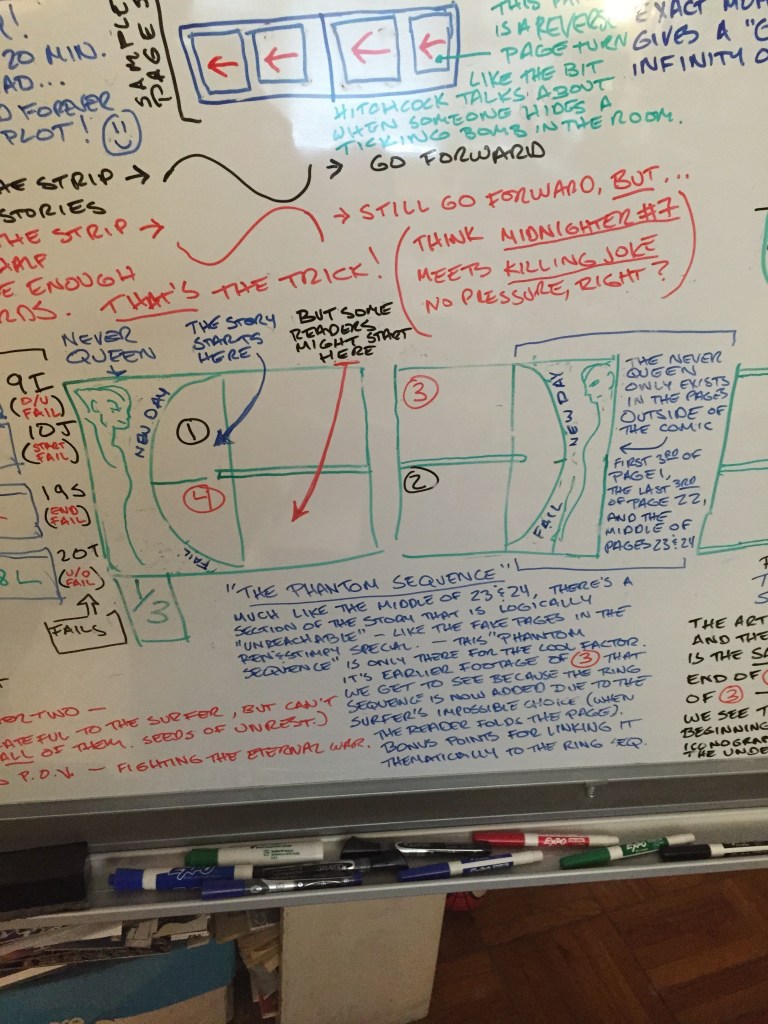 !
20 MIN.
AD...
D FOREVER
PLOT!
SAMPLE
PAGES
IS A REVERSE
PAGE TURN
LIKE THE BIT
HITCHCOCK TALKS ABOUT
WHEN SOMEONE HIDES A
TICKING BOMB IN THE ROOM.
EXACT
GIVES A
INFINITY
THE STRIP →
STORIES
→ GO FORWARD
THE STRIP →
HALF
E ENOUGH
RDS. THAT'S THE TRICK!
→ STILL GO FORWARD, BUT...
(THINK MIDNIGHTER #7
MEETS KILLING JOKE
NO PRESSURE, RIGHT?)
NEVER
QUEEN
THE STORY
STARTS
HERE
BUT SOME
READERS
MIGHT START
HERE
9I
(D/U
FAIL)
10J
(START
FAIL)
19S
(END
FAIL)
20T
(U/O
FAIL)
FAILS
8L
NEW DAY
1
4
FAIL
1/3
3
2
NEW DAY
FAIL
THE NEVER
QUEEN
ONLY EXISTS
IN THE PAGES
OUTSIDE OF
THE COMIC
FIRST 3RD OF
PAGE 1,
THE LAST 3RD
OF PAGE 22,
AND THE
MIDDLE OF
PAGES 23 & 24
"THE PHANTOM SEQUENCE"
MUCH LIKE THE MIDDLE OF 23 & 24, THERE'S A
SECTION OF THE STORY THAT IS LOGICALLY
"UNREACHABLE" – LIKE THE FAKE PAGES IN THE
REN & STIMPY SPECIAL. – THIS "PHANTOM
SEQUENCE" IS ONLY THERE FOR THE COOL FACTOR.
IT'S EARLIER FOOTAGE OF 3 THAT
WE GET TO SEE BECAUSE THE RING
SEQUENCE IS NOW ADDED DUE TO THE
SURFER'S IMPOSSIBLE CHOICE (WHEN
THE READER FOLDS THE PAGE).
BONUS POINTS FOR LINKING IT
THEMATICALLY TO THE RING SEQ.
TER TWO –
ATEFUL TO THE SURFER, BUT CAN'T
ALL OF THEM. SEEDS OF UNREST.)
P.O.V. – FIGHTING THE ETERNAL WAR.
THE ART
AND THE
IS THE
END OF
OF 3 –
WE SEE T
BEGINNING
ICONOGRAP
THE UNDE
EXPO
EXPO
EXPO
EXPO